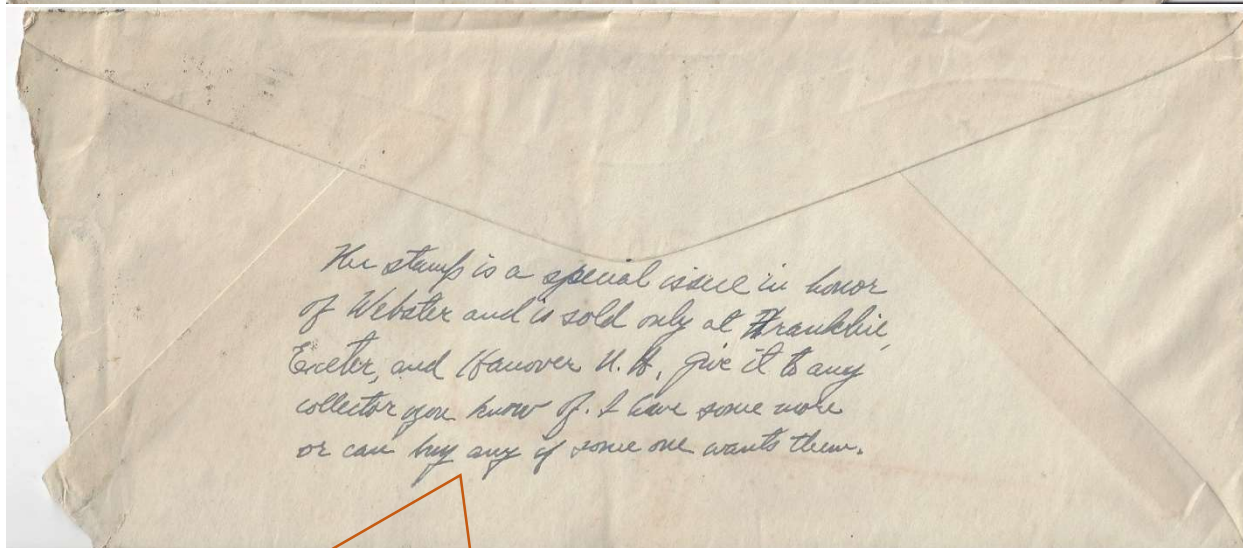 The stamp is a special issue in honor
of Webster and is sold only at Franklin,
Exeter, and Hanover N. H. give it to any
collector you know of. I have some more
or can buy any if some one wants them.